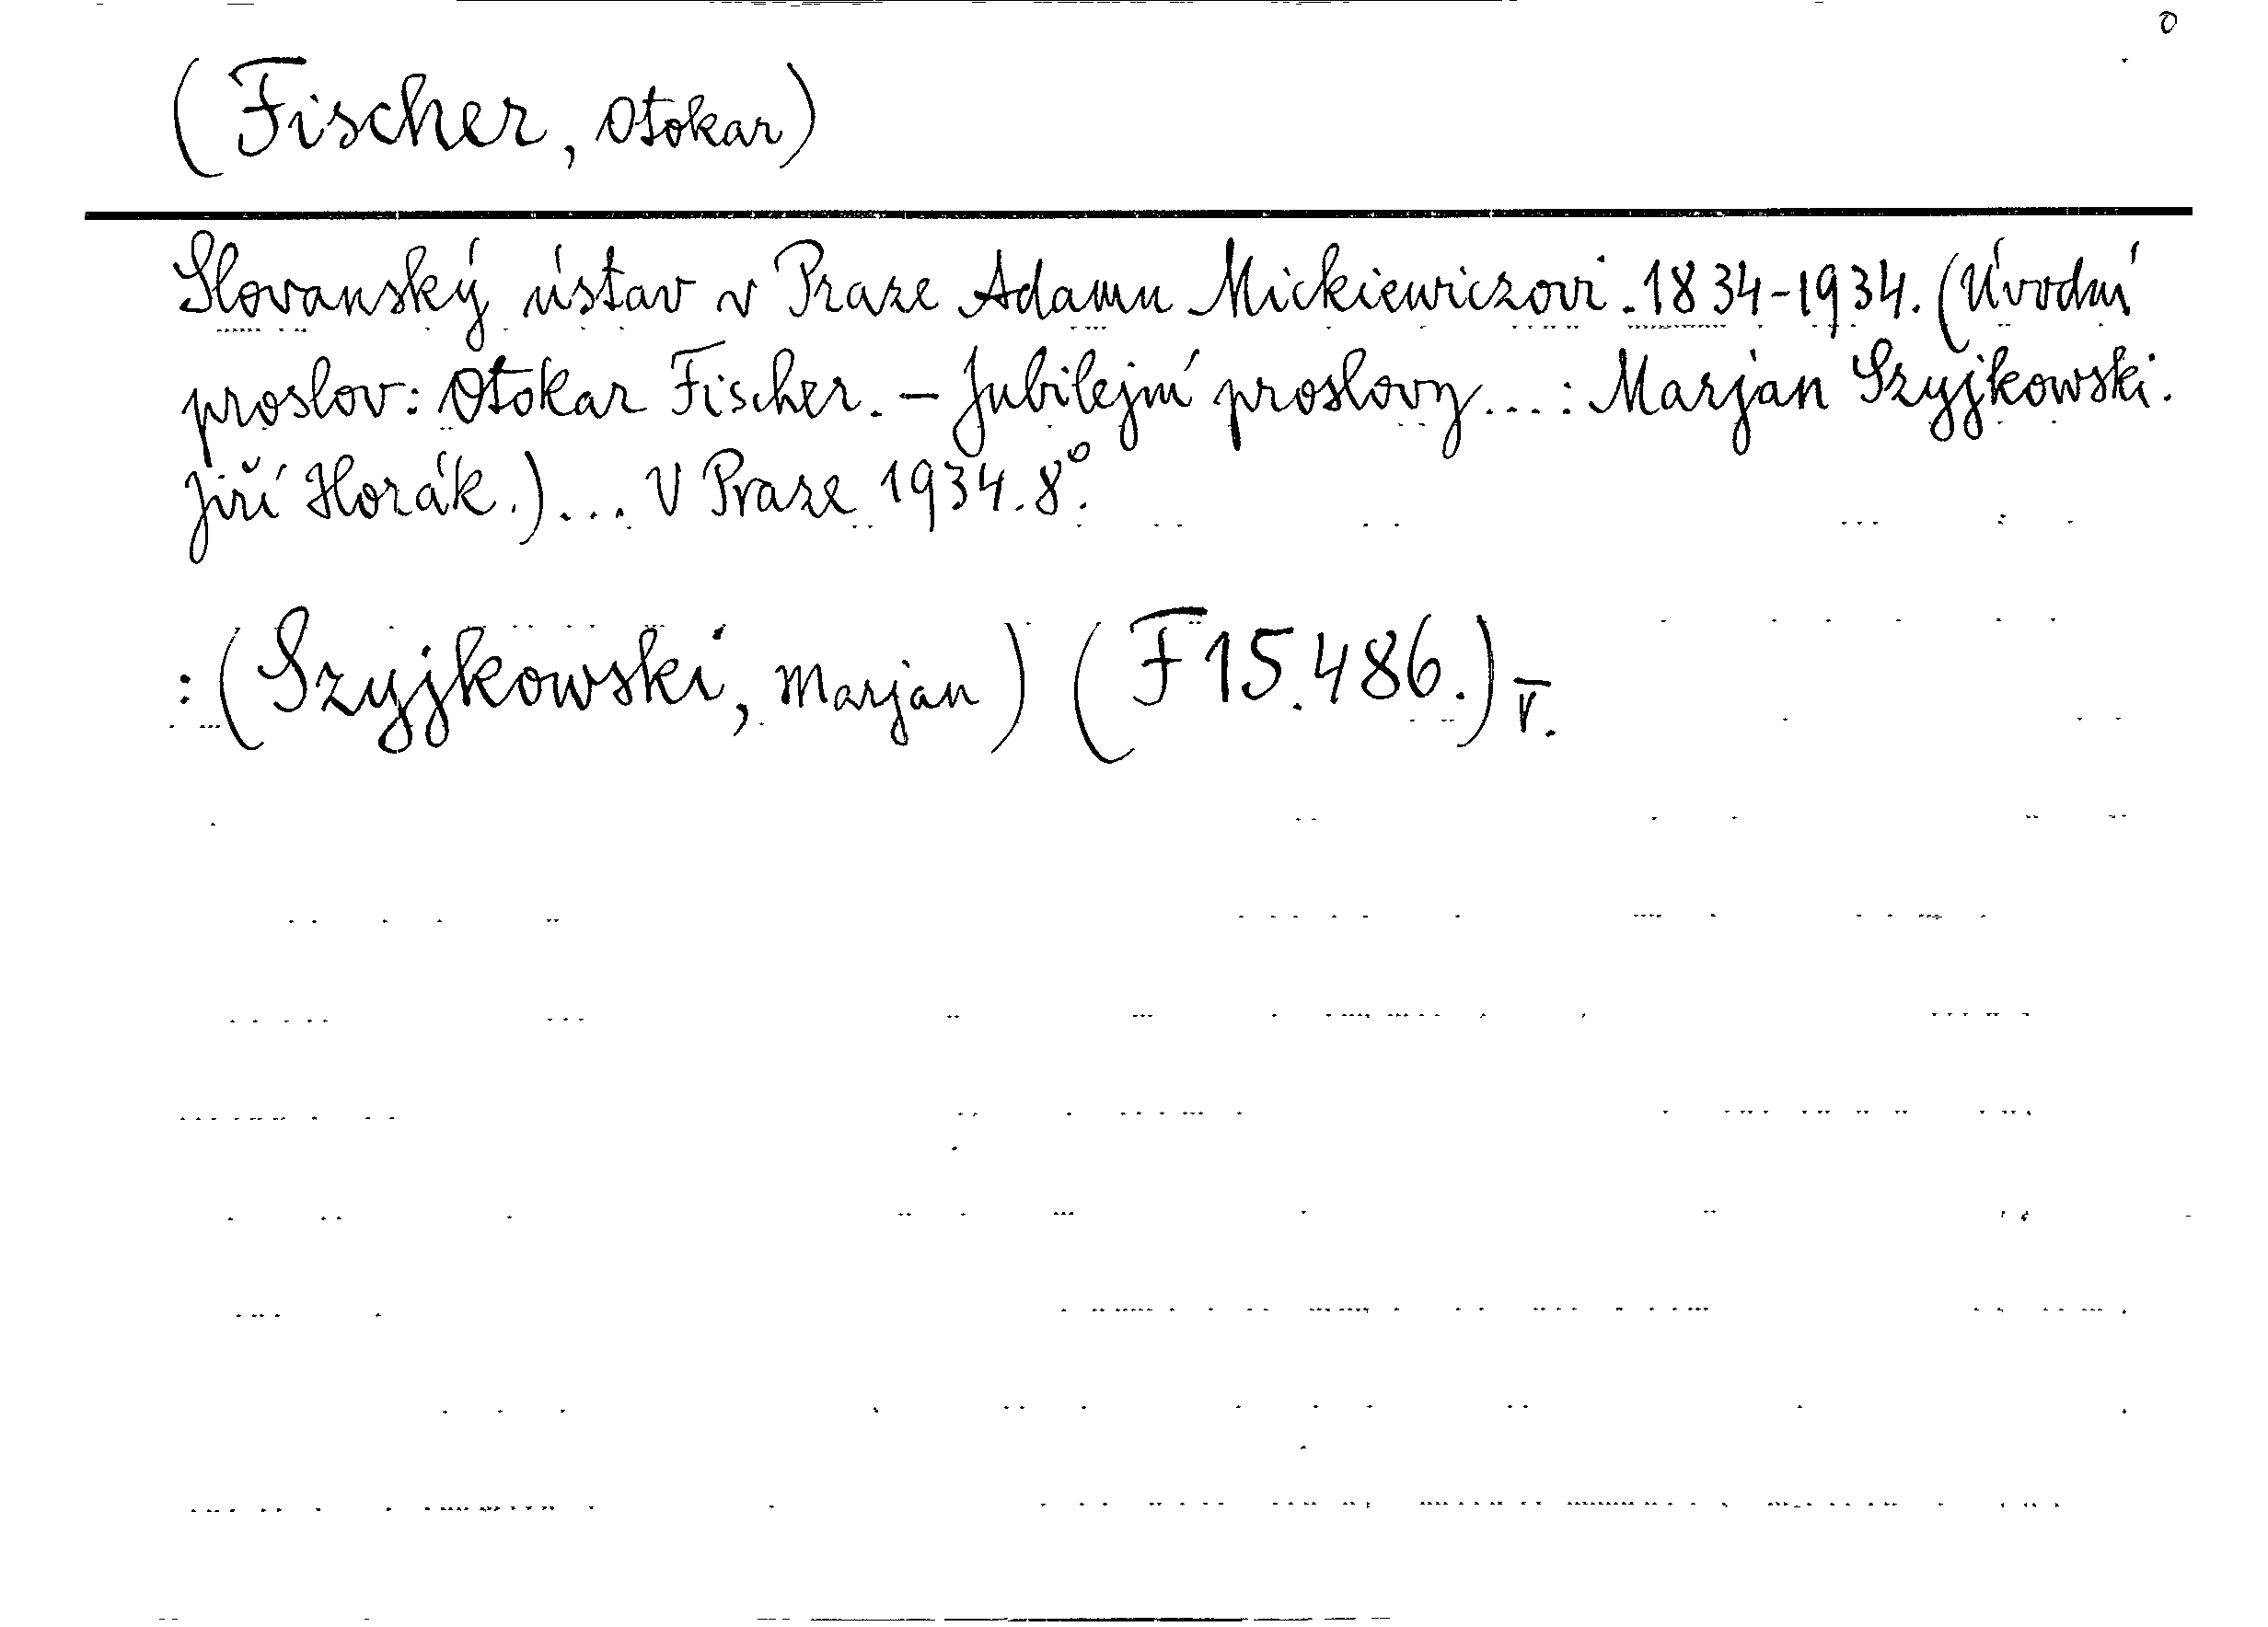 o
(Fischer, Otokar)
Slovanský ústav v Praze Adamu Mickiewiczovi. 1834-1934. (Úvodní
proslov: Otokar Fischer. – Jubilejní proslovy...: Marjan Szyjkowski.
Jiří Horák.)... V Praze 1934. 8°.
:(Szyjkowski, Marjan) (F 15.486.) V.